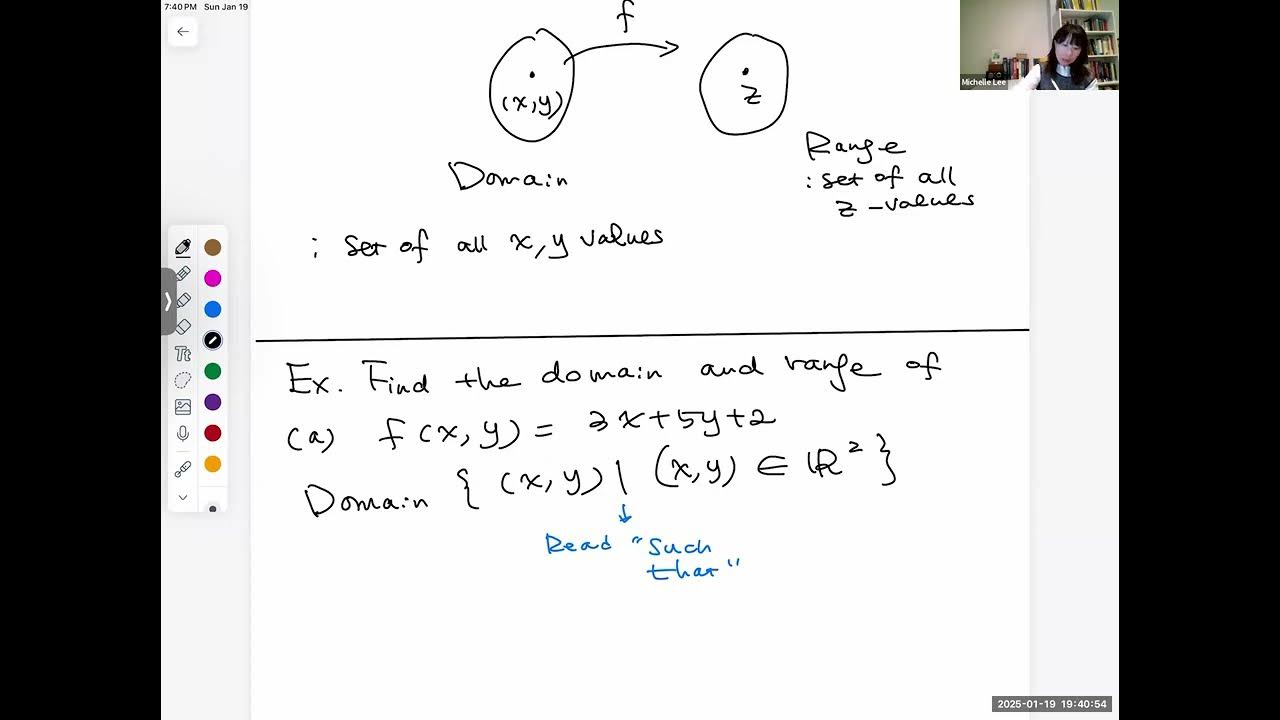 7:40 PM Sun Jan 19
f
(x,y)
z
Michelle Lee
Domain
Range
: set of all
z -values
: set of all x,y values
Ex. Find the domain and range of
(a) f(x,y) = 3x+5y+2
Domain { (x,y) | (x,y) ∈ ℝ² }
↓
Read "Such
that"
Tt
2025-01-19 19:40:54